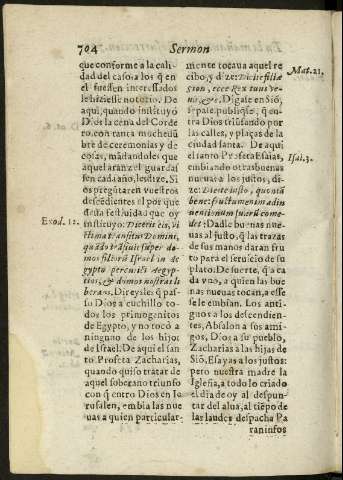 704 Sermon
que conforme a la cali-
dad del caso a los q̃ en
el fuessen interessados
le hiziesse notorio. De
aqui, quando instituyò
Dios la cena del Corde
ro, con tanta mochedũ
bre de ceremonias y de
cosas, mãdandoles que
aquel aranzel guardas
sen cada año, les dize. Si
os pregũtaren vuestros
descediẽtes el por que
desta festiuidad que oy
instituyo: Dicetis eis, vi
ctima transitus Domini,
quãdo trãsiuit super do-
mos filiorũ Israel in Ae-
gypto percutiẽs Aegyp-
tios, & domos nostras li
berans. Direysle: q̃ pas-
so Dios a cuchillo to
dos los primogenitos
de Egypto, y no tocò a
ninguno de los hijos
de Israel. De aqui el san
to Profeta Zacharias,
quando quiso tratar de
aquel soberano triunfo
con q̃ entro Dios en Ie
rusalen, embia las nue
uas a quien particular-
Exod. 12.
mente tocaua aquel re
cibo, y dize: Dicite filiæ
Sion, ecce Rex tuus ve-
nit, &c. Digase en Siõ,
sepase, publiq̃se, q̃ en-
tra Dios triũfando por
las calles, y plaças de la
ciudad santa. De aqui
el santo Profeta Esaias,
embiando otras buenas
nueuas a los justos, di-
ze: Dicite iusto, quoniã
bene: fructum enim adin
uentionum suarũ come-
det: Dadle buenas nue-
uas al justo, q̃ las traças
de sus manos daran fru
to para el seruicio de su
plato. De suerte, q̃ a ca
da vno, a quien las bue
nas nueuas tocan, a esse
se le embian. Los anti-
guos a los descendien-
tes, Absalon a sus ami-
gos, Dios a su pueblo,
Zacharias a las hijas de
Siõ, Esayas a los justos:
pero nuestra madre la
Iglesia, a todo lo criado
el dia de oy al despun-
tar del alua, al tiẽpo de
las laudes despacha Pa
raninfos
Mat. 21.
Isai. 3.